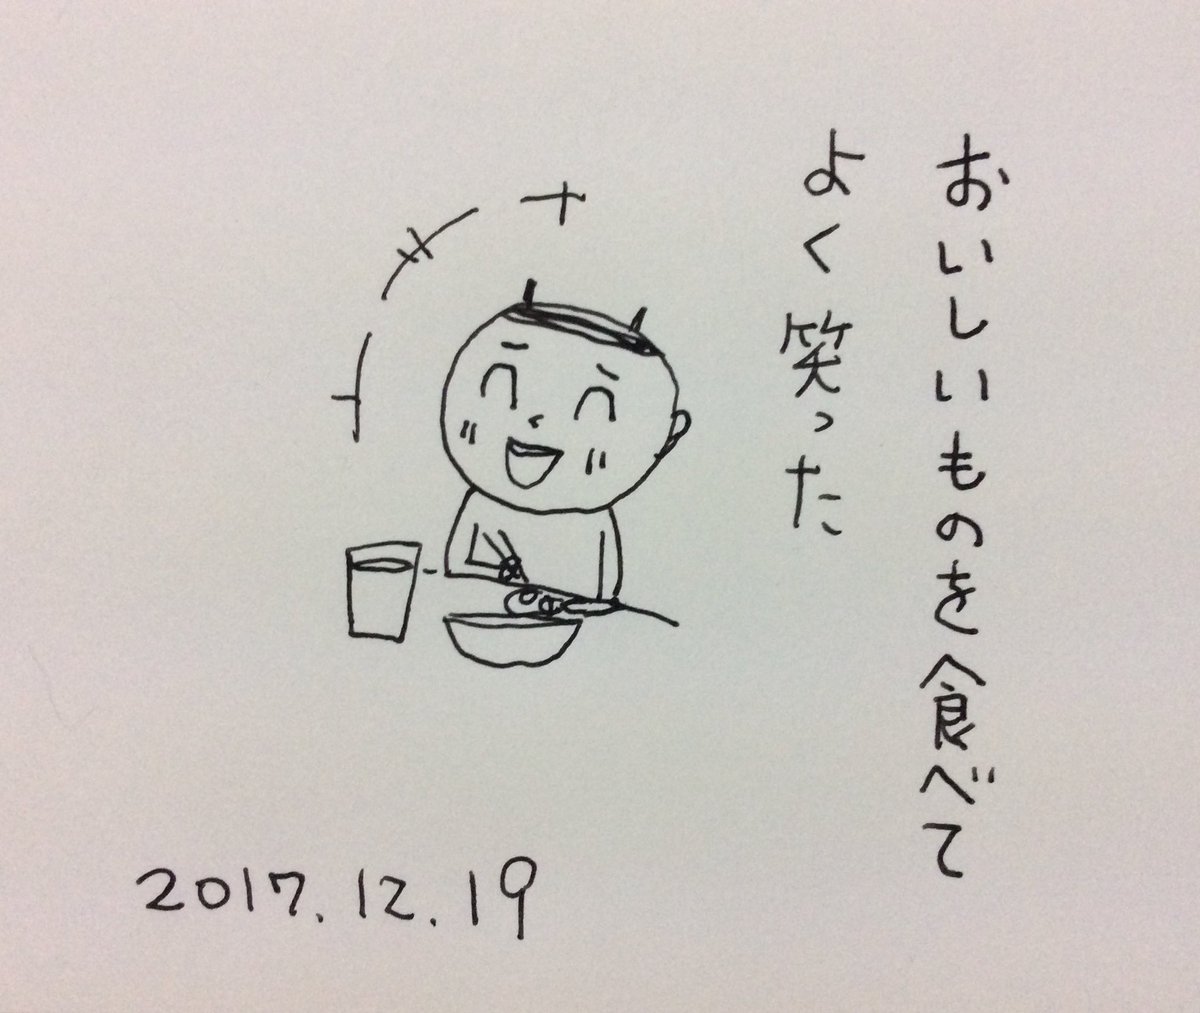 おいしいものを食べて
よく笑った
2017.12.19